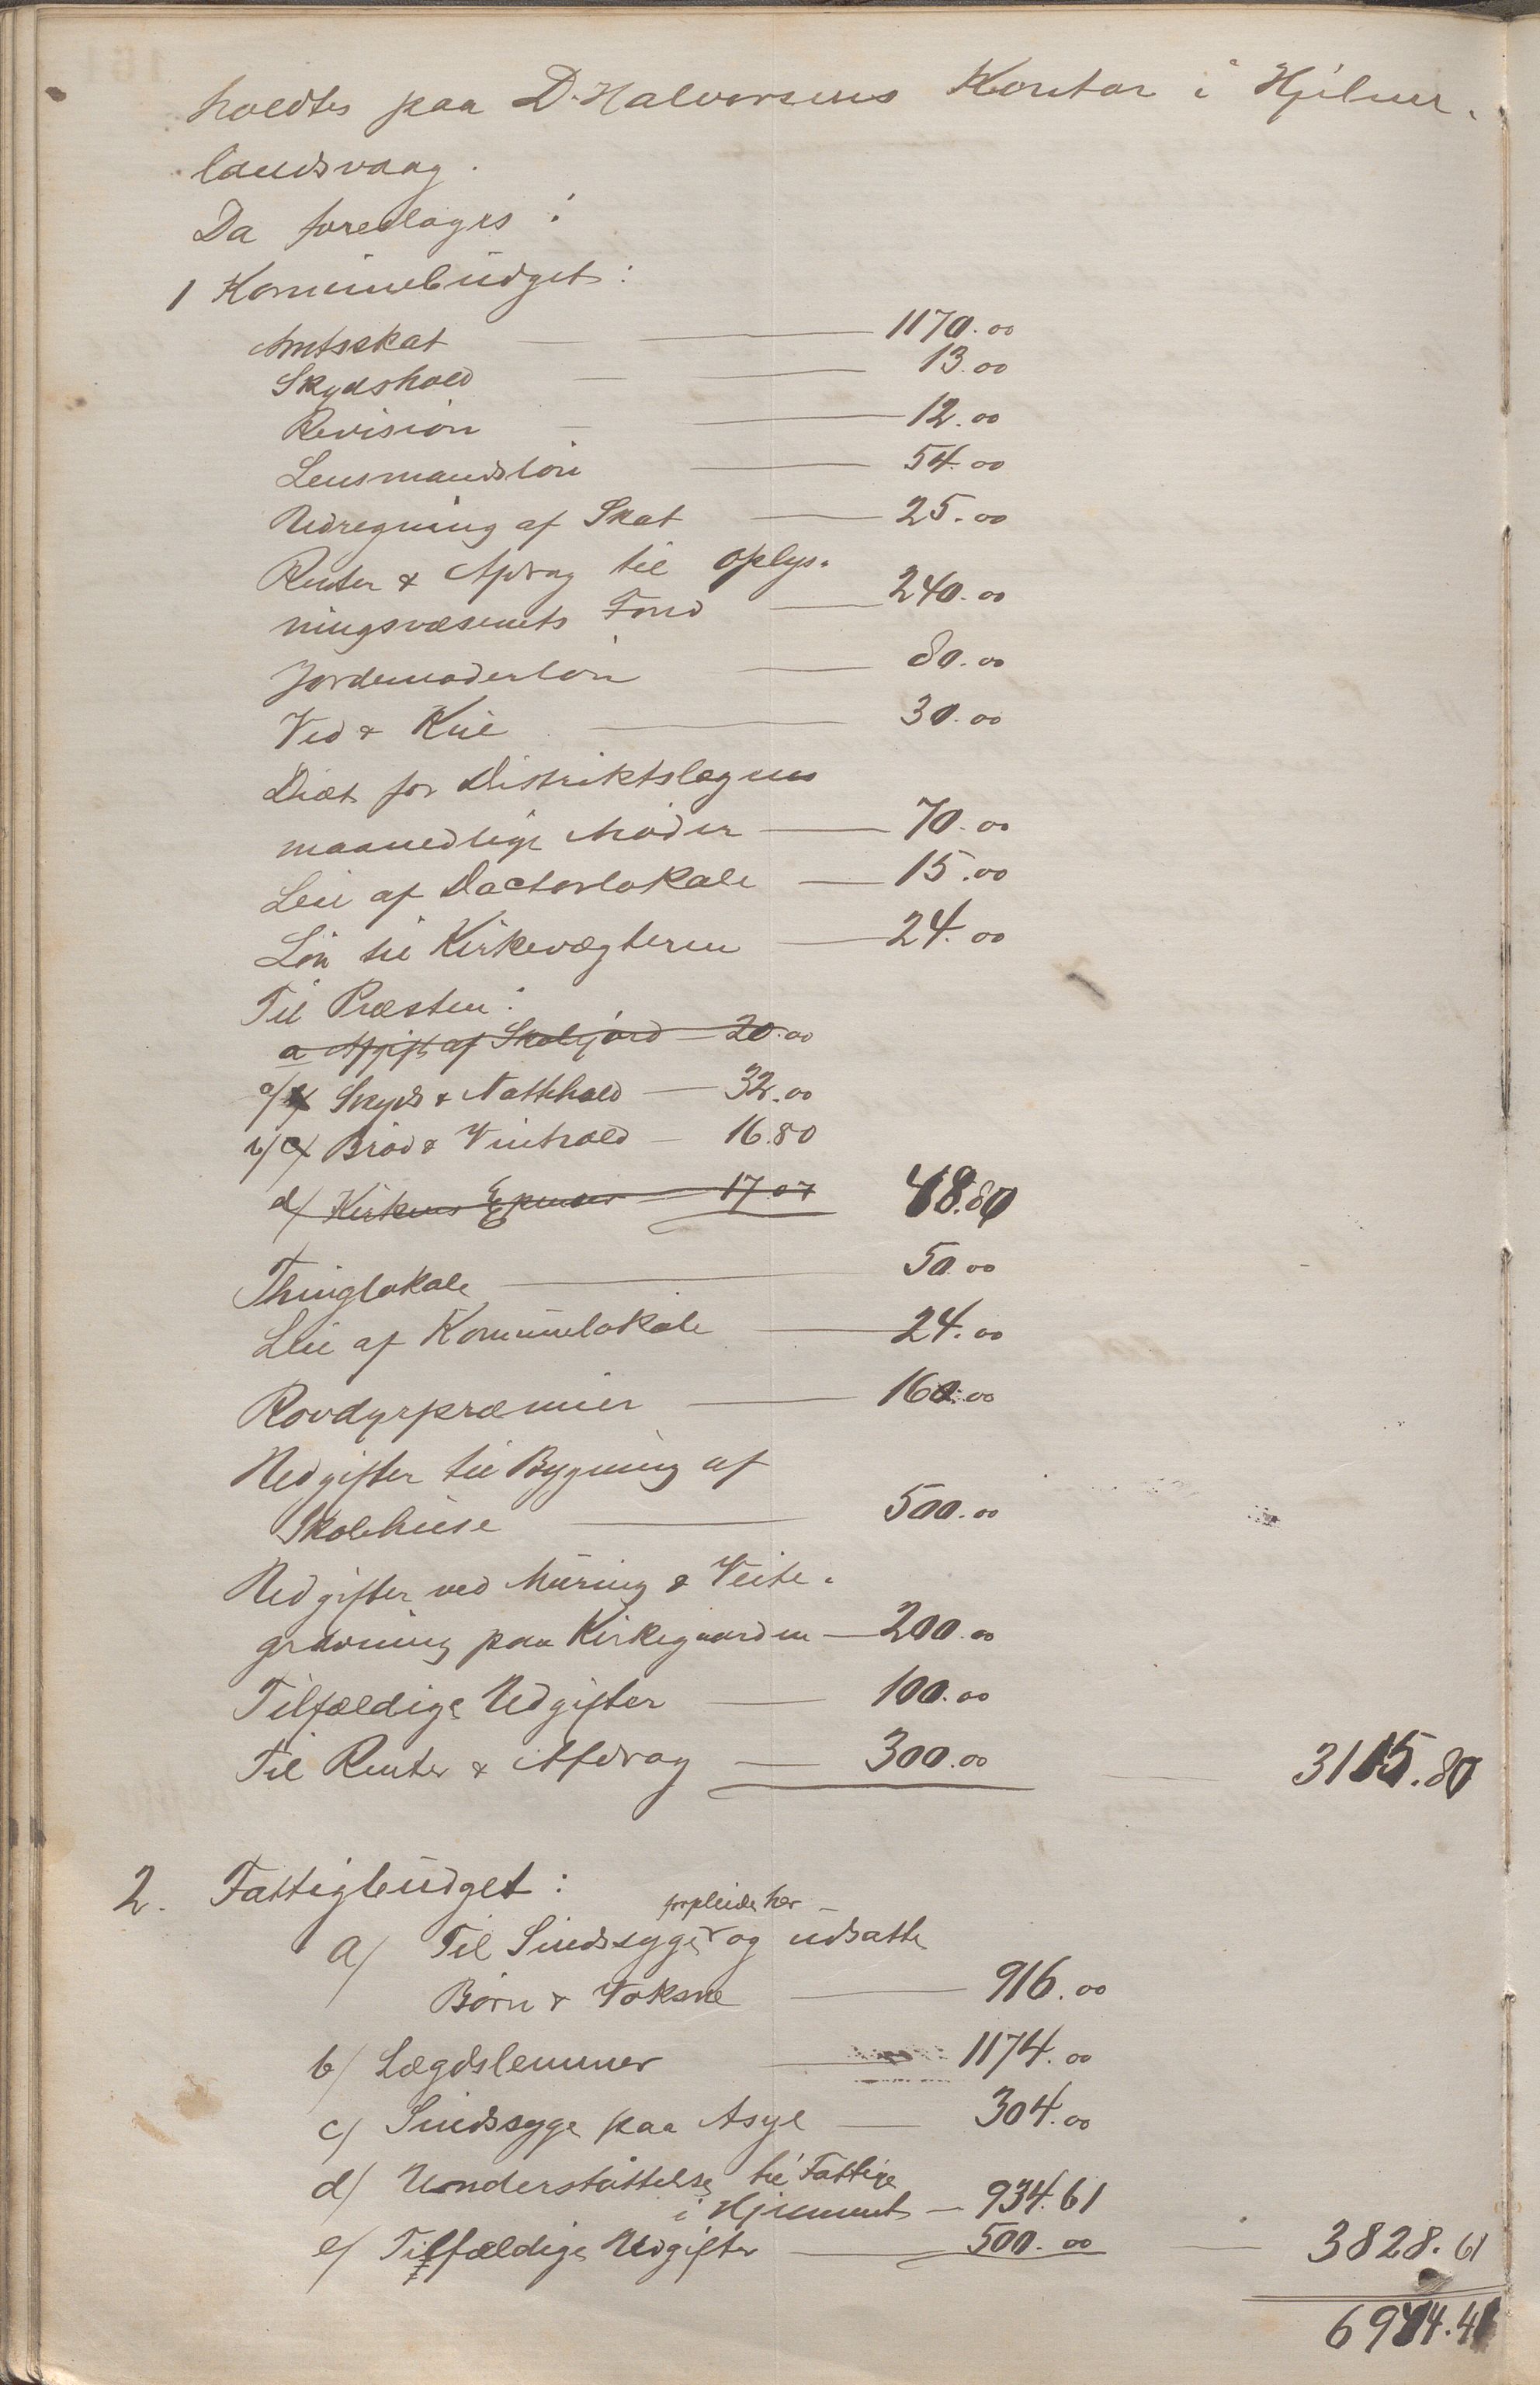 holdtes paa D. Halvorsens Kontor i Hjelmer-
landsvaag.
Da foretoges:
1 Kommunebudget:
Amtsskat 1170.00
Skydshold 13.00
Revision 12.00
Lensmandsløn 54.00
Udregning af Skat 25.00
Renter & Afdrag til Oplys-
ningsvæsenets Fond 240.00
Jordemoderløn 80.00
Ved & Kul 30.00
Diæt for Distriktslægens
maanedlige Møder 70.00
Leie af Doctorlokale 15.00
Løn til Kirkevægteren 24.00
Til Præsten:
a Afgift af Skolejord 20.00
a/ Skyds & Nattehold 32.00
b/ c/ Brød & Vinhold 16.80
d/ Kirkens Expenser 17.07 48.80
Thinglokale 50.00
Leie af Kommunelokale 24.00
Rovdyrpræmier 160.00
Udgifter til Bygning af
Skolehuse 500.00
Udgifter ved Muring & Veite-
gravning paa Kirkegaarden 200.00
Tilfældige Udgifter 100.00
Til Renter & Afdrag 300.00 3115.80
2. Fattigbudget:
forpleiede her
a/ Til Sindssyge og udsatte
Børn & Voksne 916.00
b/ Lægdslemmer 1174.00
c/ Sindssyge paa Asyl 304.00
d/ Understøttelse til Fattige
i Hjemmet 934.61
e/ Tilfældige Udgifter 500.00 3828.61
6944.41